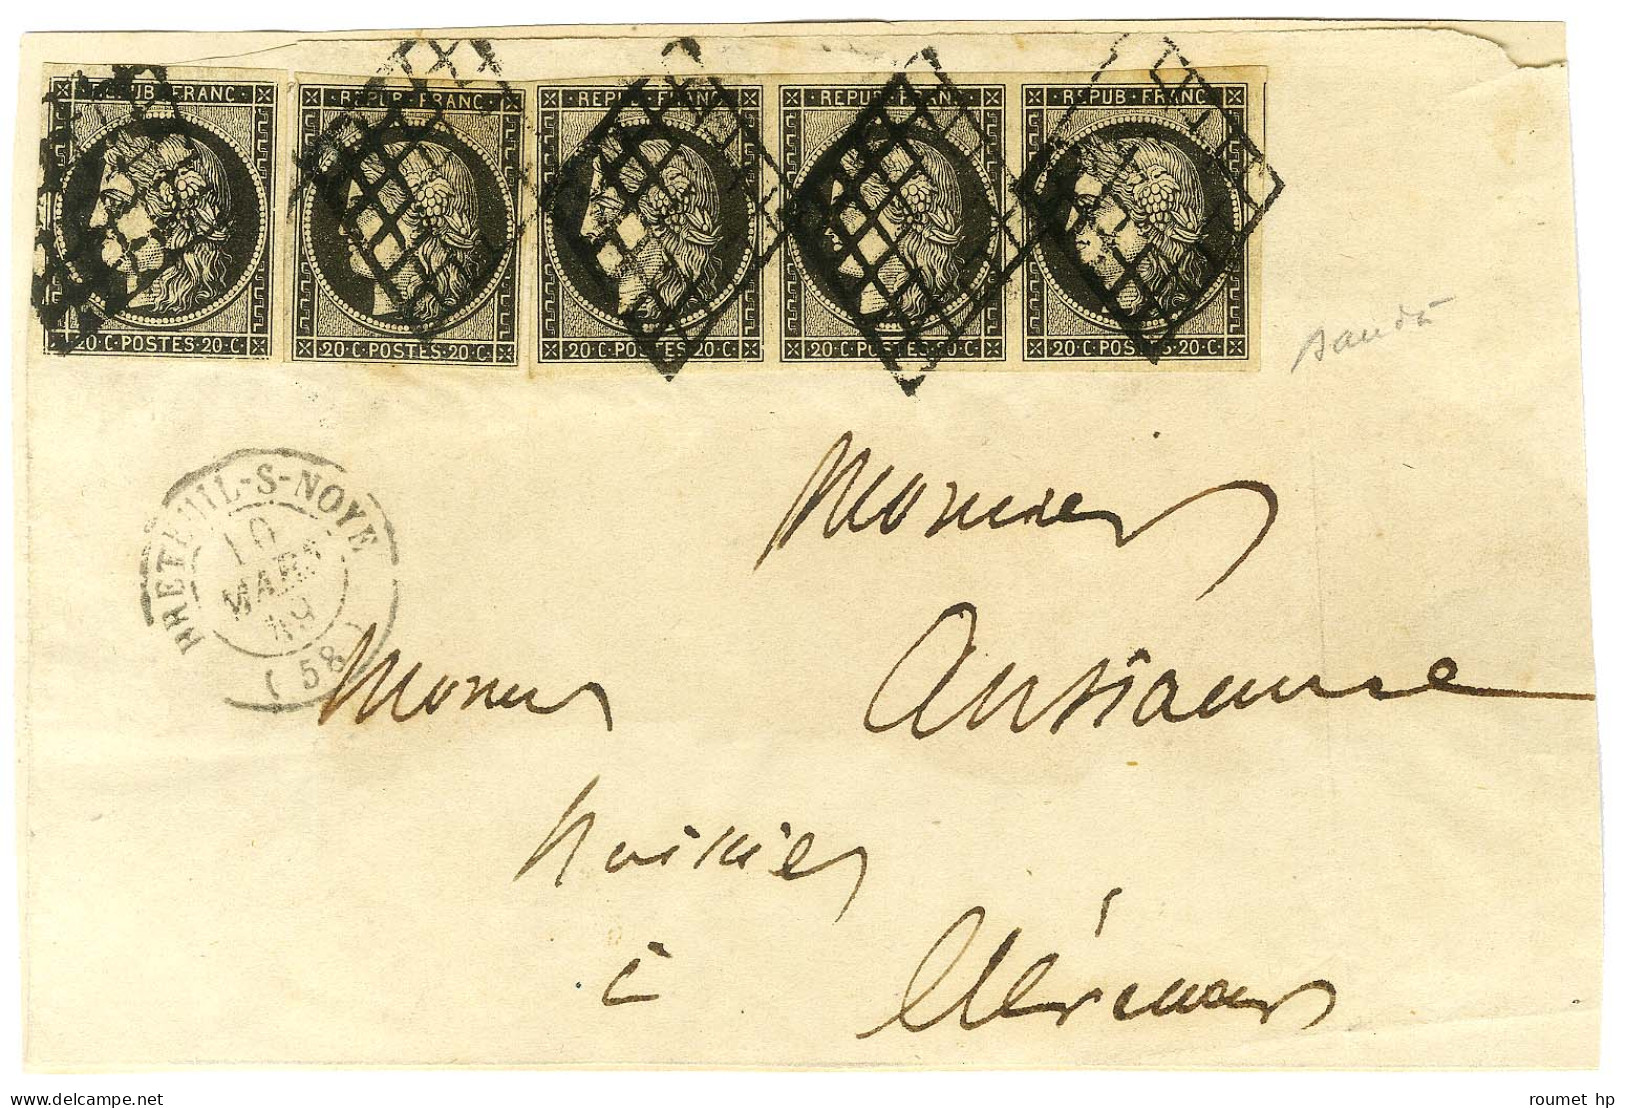 REPUB·FRANC REPUB·FRANC REPUB·FRANC REPUB·FRANC REPUB·FRANC
20·C·POSTES·20·C 20·C·POSTES·20·C 20·C·POSTES·20·C 20·C·POSTES·20·C 20·C·POSTES·20·C
BRETEUIL-S-NOYE
10
MARS
49
(58)
Monsieur
Monsieur
huissier
à
Clermont
© DELCAMPE
roumet hp